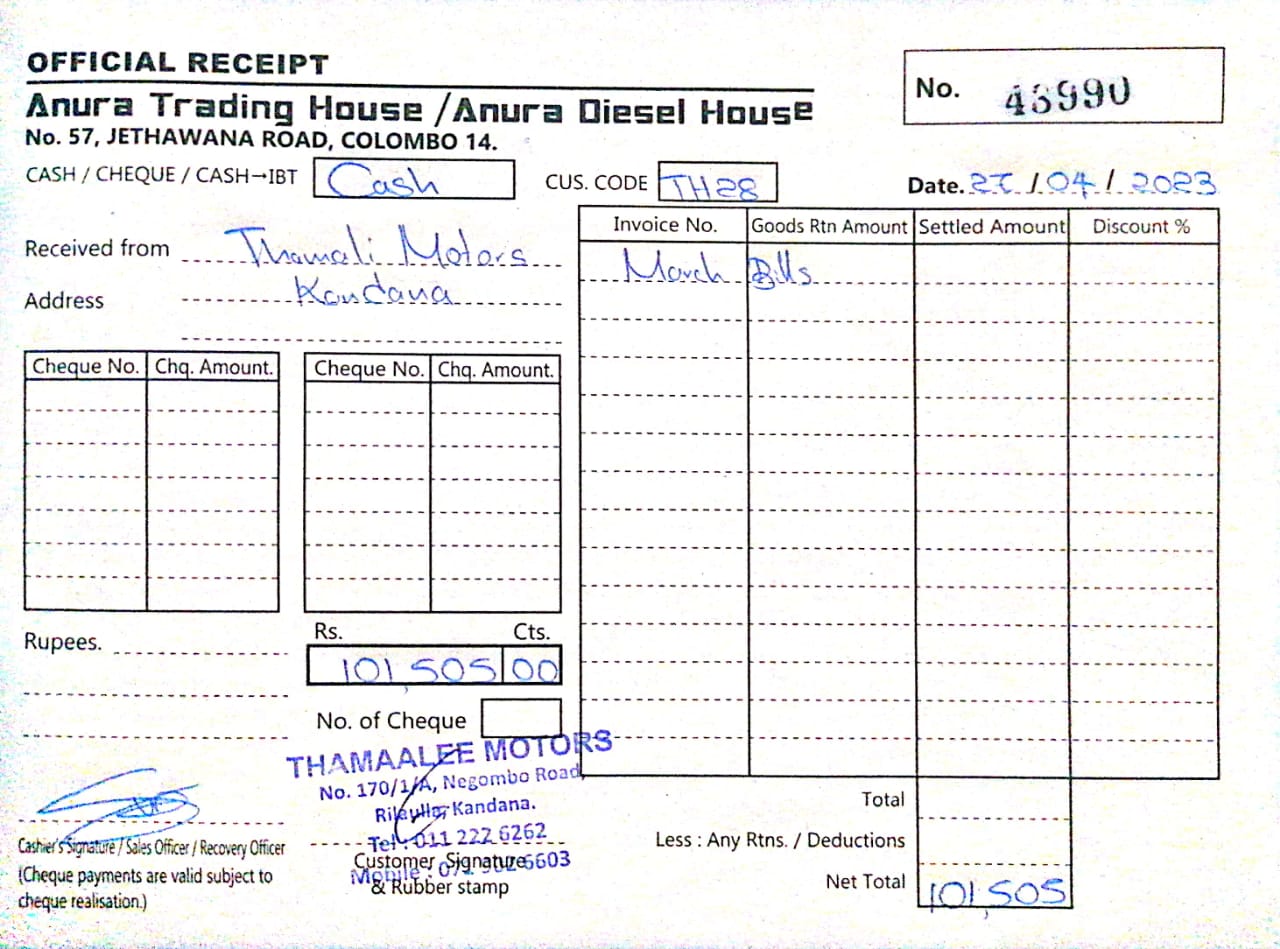 OFFICIAL RECEIPT
Anura Trading House / Anura Diesel House
No. 57, JETHAWANA ROAD, COLOMBO 14.
No. 43990
CASH / CHEQUE / CASH→IBT Cash
CUS. CODE TH28
Date. / 04 / 2023
Received from Thamali Motors
Address Kandana
Invoice No. Goods Rtn Amount Settled Amount Discount %
March Bills
Cheque No. Chq. Amount. Cheque No. Chq. Amount.
Rupees.
Rs. Cts.
101,505 00
No. of Cheque
THAMAALEE MOTORS
No. 170/1/A, Negombo Road,
Kandana.
Tel : 011 222 6262
Mobile : 6603
Cashier's Signature / Sales Officer / Recovery Officer
(Cheque payments are valid subject to
cheque realisation.)
Customer Signature
& Rubber stamp
Total
Less : Any Rtns. / Deductions
Net Total 101,505